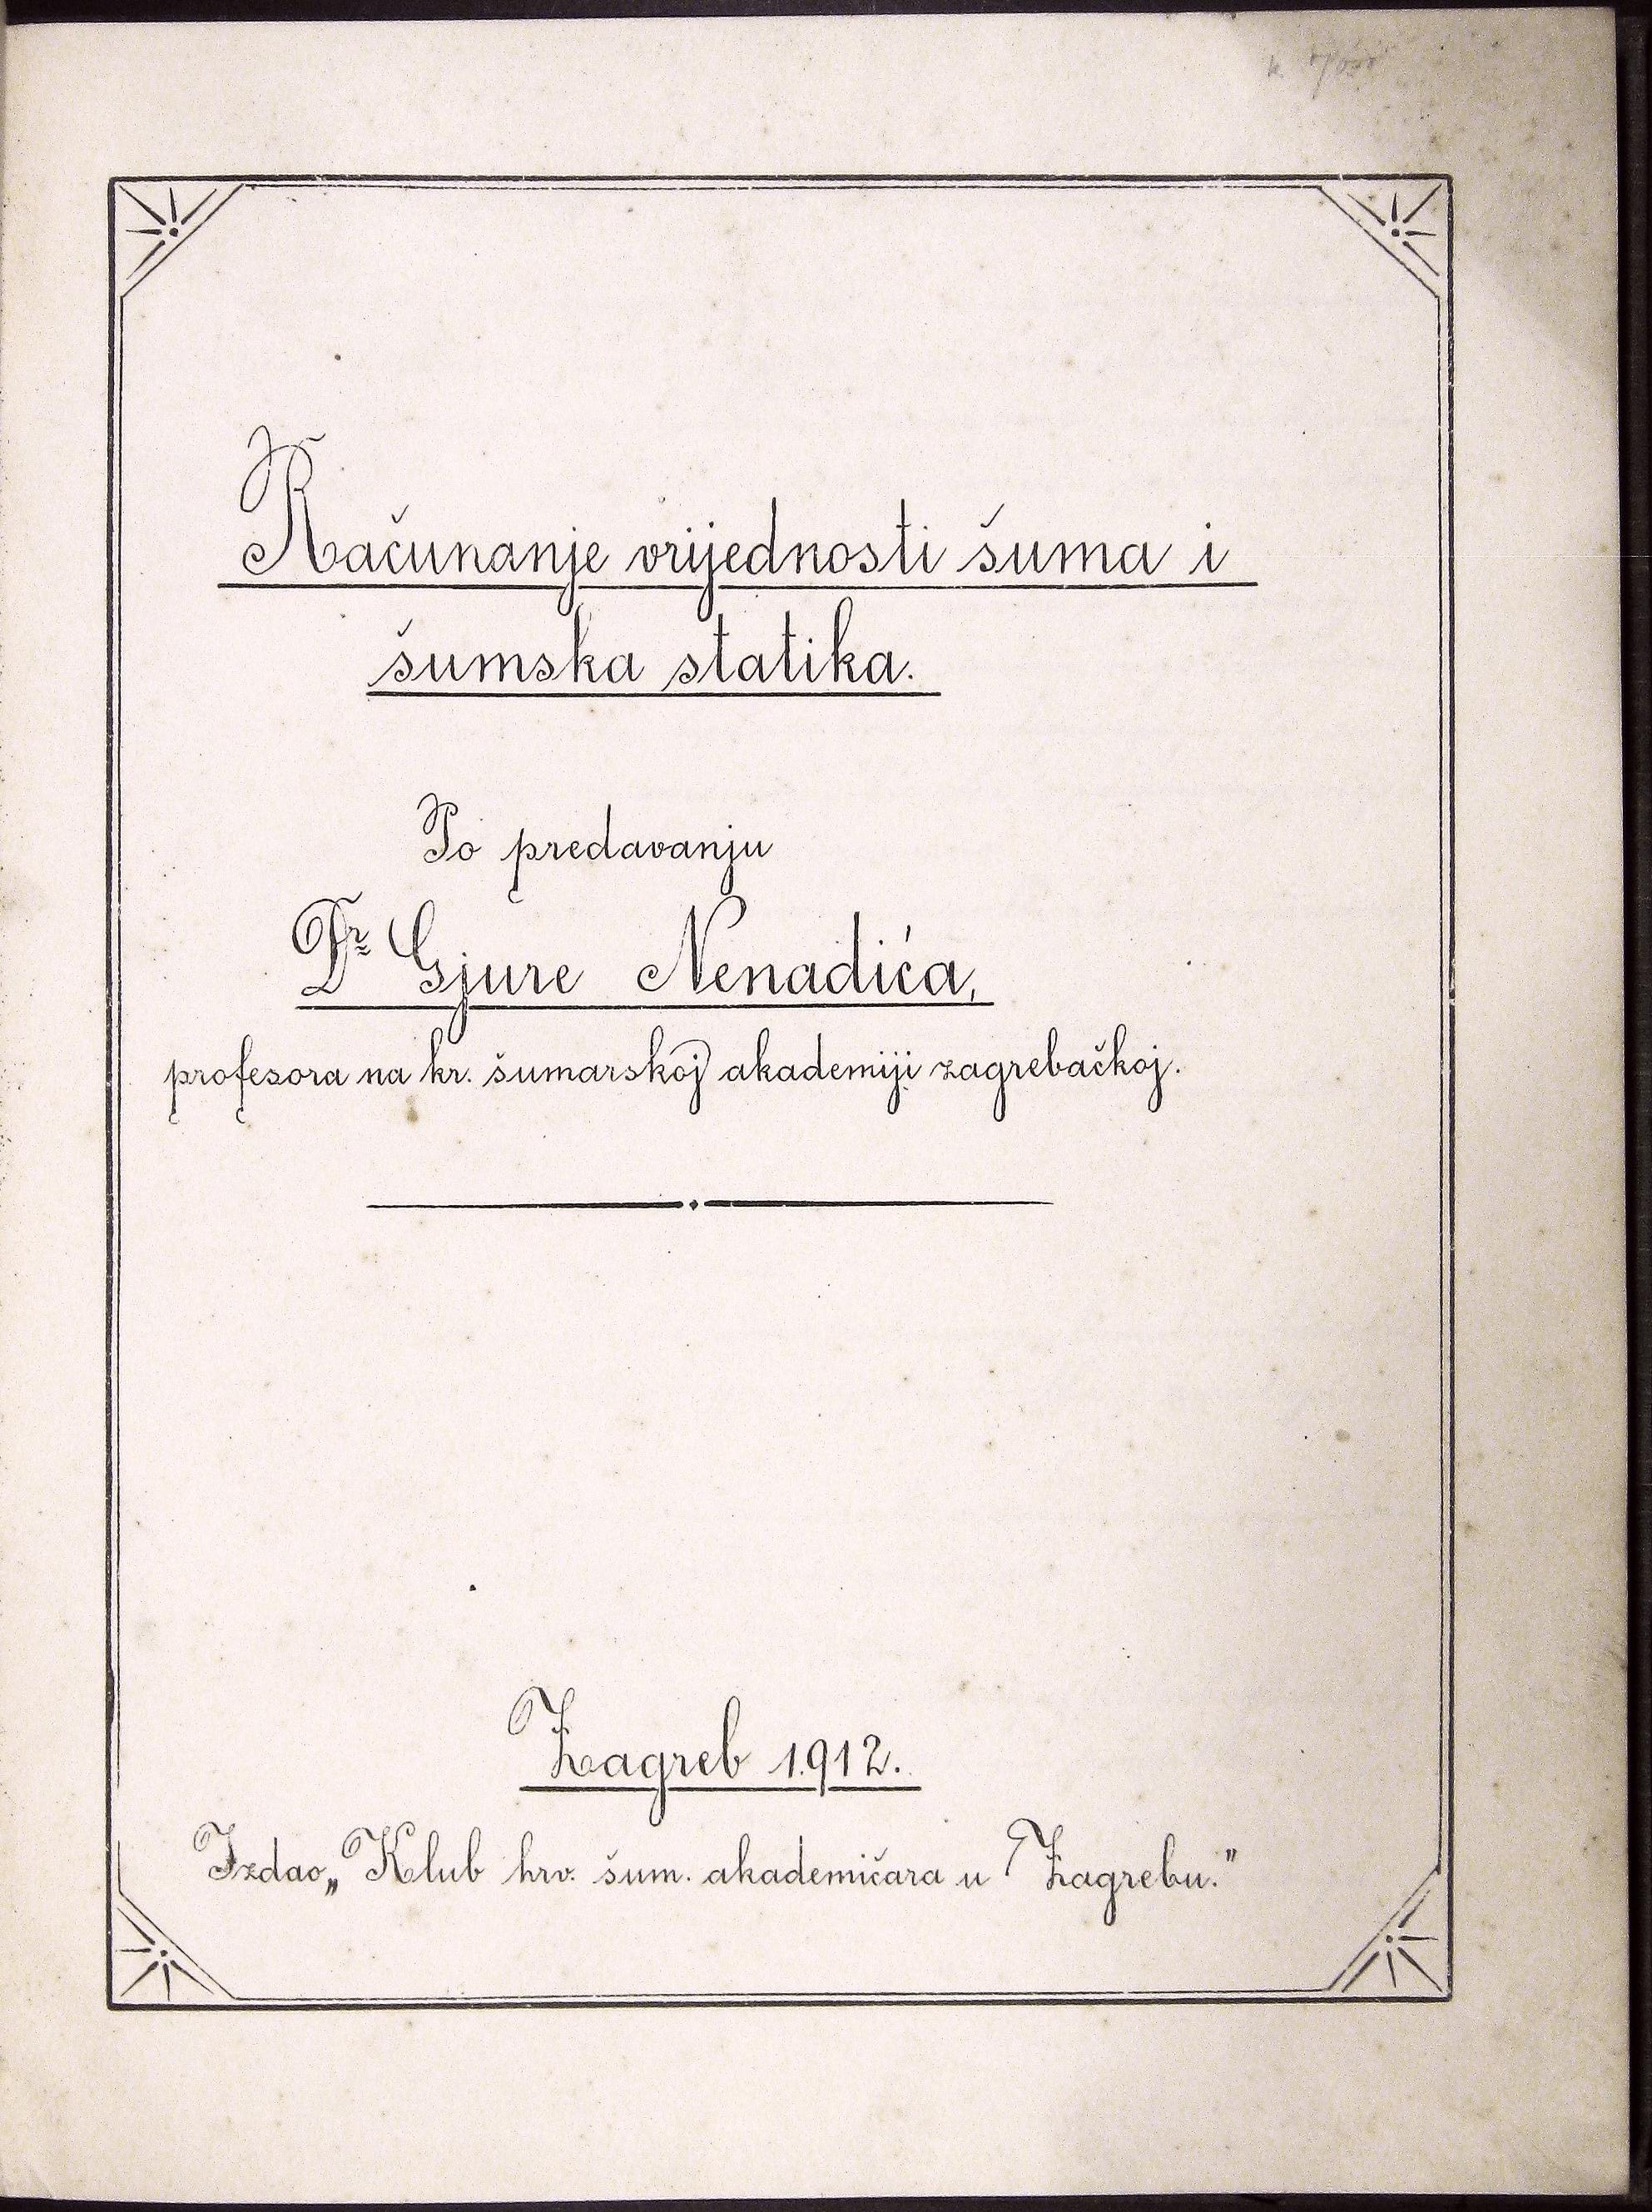 Računanje vrijednosti šuma i
šumska statika.
Po predavanju
Dr Gjure Nenadića,
profesora na kr. šumarskoj akademiji zagrebačkoj.
Zagreb 1912.
Izdao „Klub hrv. šum. akademičara u Zagrebu."